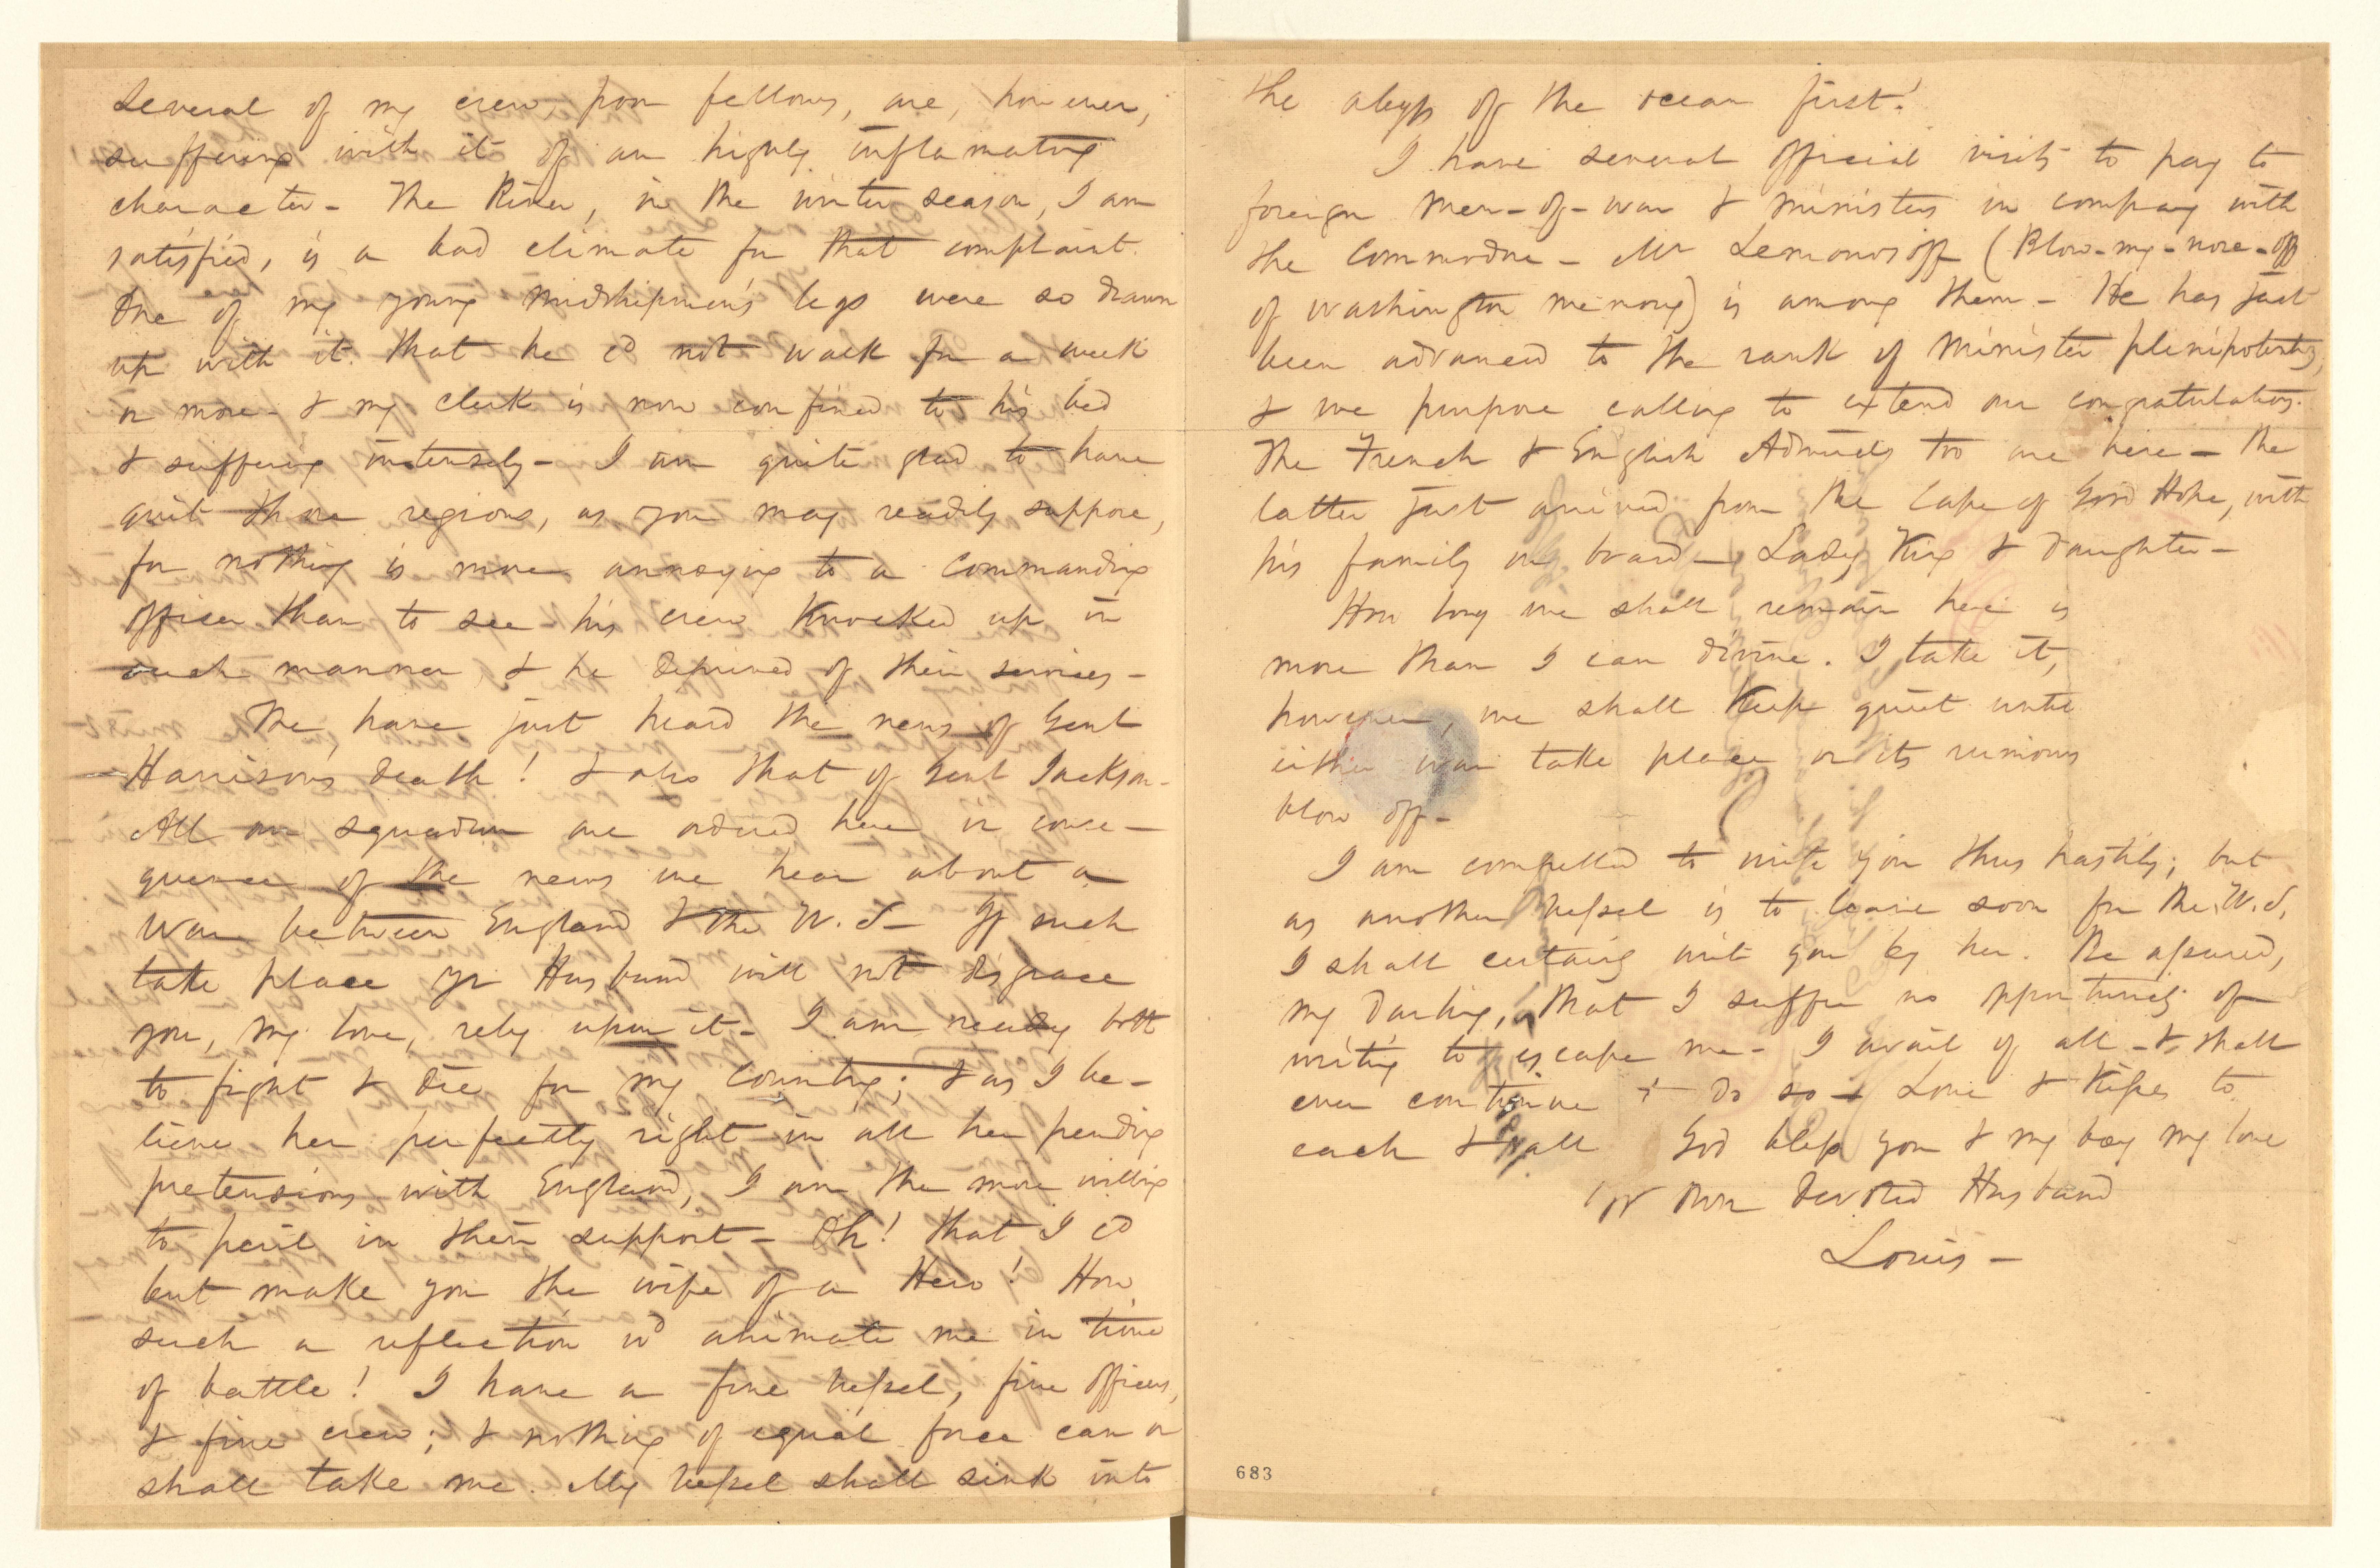 several of my crew, poor fellows, are, however,
suffering with it of an highly inflamating
character - The River, in the winter season, I am
satisfied, is a bad climate for that complaint.
One of my young midshipmen's legs were so drawn
up with it that he cd not walk for a week
or more - & my clerk is now confined to his bed
& suffering intensely - I am quite glad to have
quit those regions, as you may readily suppose,
for nothing is more annoying to a commanding
officer than to see his crew knocked up in
such manner & he deprived of their services -
We have just heard the news of Genl
Harrison's death! & also that of Genl Jackson -
All our squadron are ordered here in conse-
quence of the news we hear about a
war between England & the U.S - If such
take place yr Husband will not disgrace
you, my love, rely upon it - I am ready both
to fight & die for my Country; & as I be-
lieve her perfectly right in all her pending
pretensions with England, I am the more willing
to peril in their support - Oh! that I cd
but make you the wife of a Hero! How
such a reflection wd animate me in time
of battle! I have a fine vessel, fine officers,
& fine crew; & nothing of equal force can or
shall take me. My vessel shall sink into
the abyss of the ocean first!
I have several official visits to pay to
foreign men-of-war & ministers in company with
the Commodore - Mr Lemonosoff (Blow-my-nose-off
of Washington memory) is among them - He has just
been advanced to the rank of Minister plenipotentiary,
& we purpose calling to extend our congratulations.
The French & English Admirals too are here - the
latter just arrived from the Cape of Good Hope, with
his family on board - Lady King & daughter -
How long we shall remain here is
more than I can divine. I take it,
however, we shall keep quiet until
either war take place or its rumours
blow off -
I am compelled to write you thus hastily; but
as another vessel is to leave soon for the U.S,
I shall certainly write you by her. Be assured,
my darling, that I suffer no opportunity of
writing to escape me - I avail of all - & shall
ever continue to do so - Love & kisses to
each & all God bless you & my boy my love
Yr own devoted Husband
Louis -
683